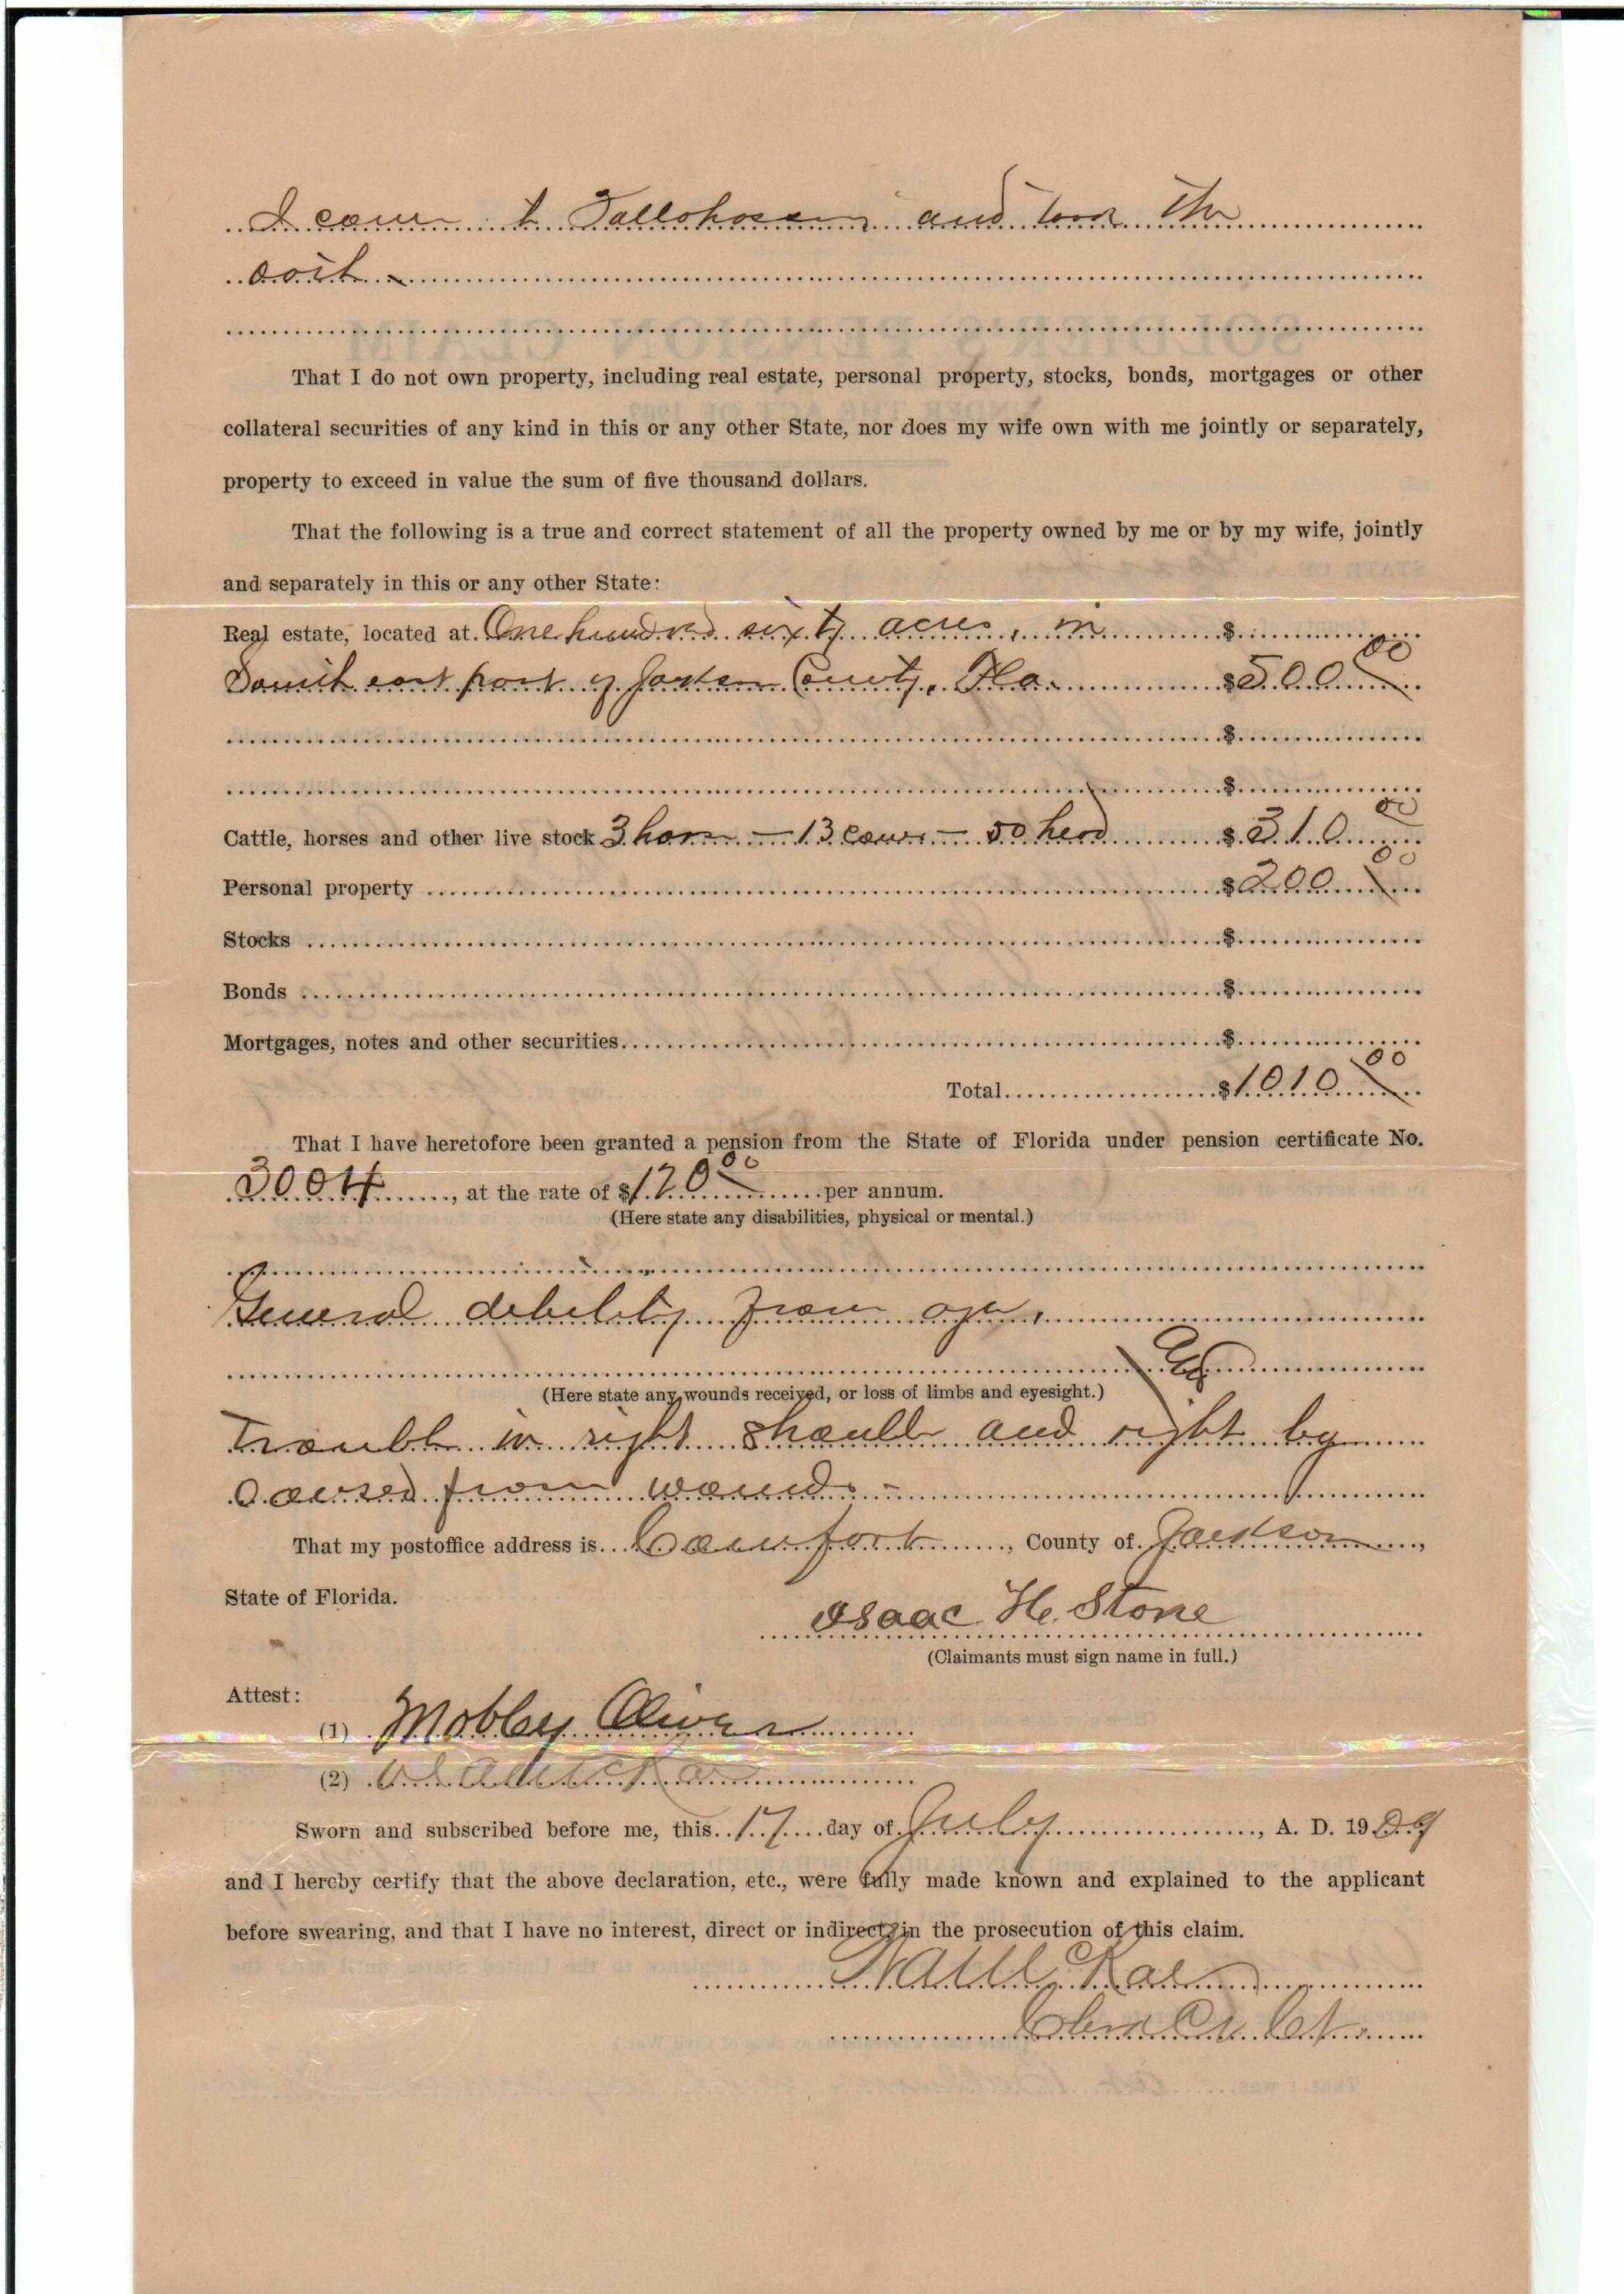 I came to Tallahassee and took the
oath -
That I do not own property, including real estate, personal property, stocks, bonds, mortgages or other
collateral securities of any kind in this or any other State, nor does my wife own with me jointly or separately,
property to exceed in value the sum of five thousand dollars.
That the following is a true and correct statement of all the property owned by me or by my wife, jointly
and separately in this or any other State:
Real estate, located at One hundred sixty acres, in $
South east part of Jackson County, Fla. $500 00
$
$
Cattle, horses and other live stock 3 horses - 13 cows - 50 head $310 00
Personal property $200 00
Stocks $
Bonds $
Mortgages, notes and other securities $
Total $1010 00
That I have heretofore been granted a pension from the State of Florida under pension certificate No.
3004, at the rate of $120 00 per annum.
(Here state any disabilities, physical or mental.)
General debility from age,
(Here state any wounds received, or loss of limbs and eyesight.)
Trouble in right shoulder and right leg
caused from wounds -
That my postoffice address is, County of Jackson,
State of Florida.
Isaac H. Stone
(Claimants must sign name in full.)
Attest:
(1) Mobley Oliver
(2)
Sworn and subscribed before me, this 17 day of July, A. D. 1909
and I hereby certify that the above declaration, etc., were fully made known and explained to the applicant
before swearing, and that I have no interest, direct or indirect, in the prosecution of this claim.
Clerk Cir. Ct.